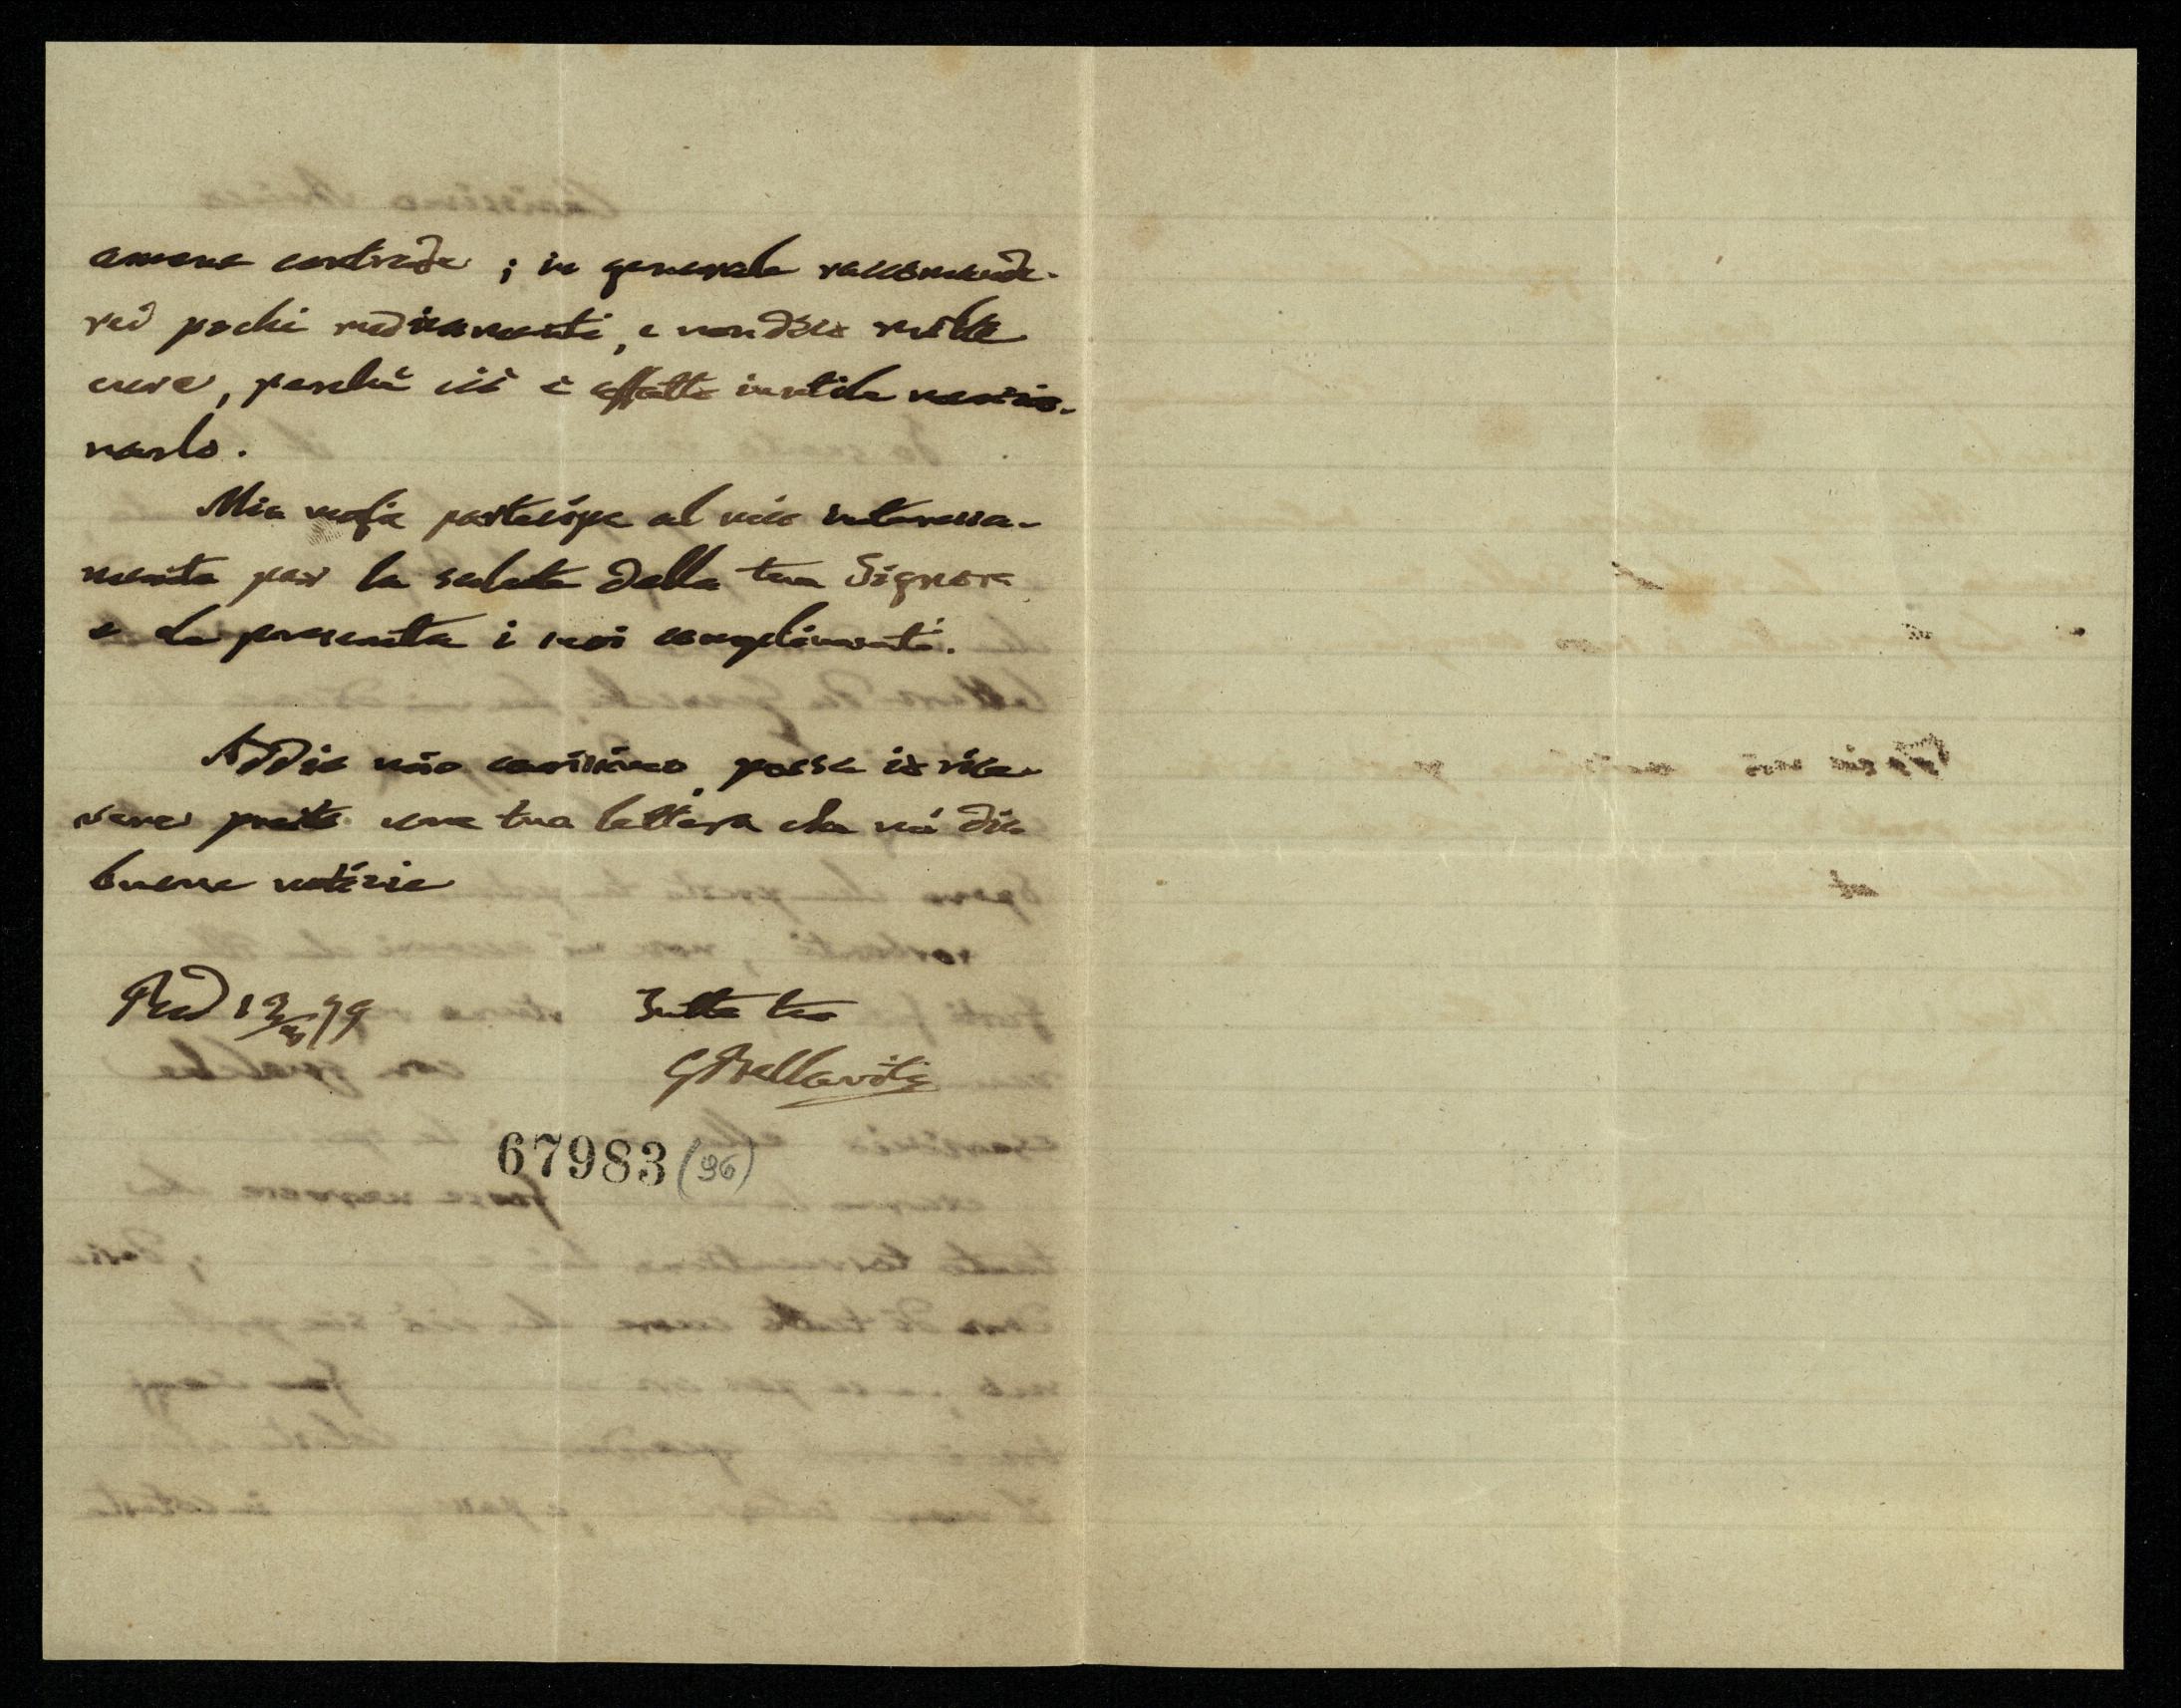 amene contrade; in generale raccomande-
rei pochi medicamenti, e non dico molte
cure, perchè ciò è affatto inutile menzio-
narlo.
Mia moglie partecipa al mio interessa-
mento per la salute della tua Signora
e Le presenta i suoi complimenti.
Addio mio carissimo, possa io rice-
vere presto una tua lettera che mi dia
buone notizie
Pad 12 79 Tutto tuo
GBellavitis
67983 (96)